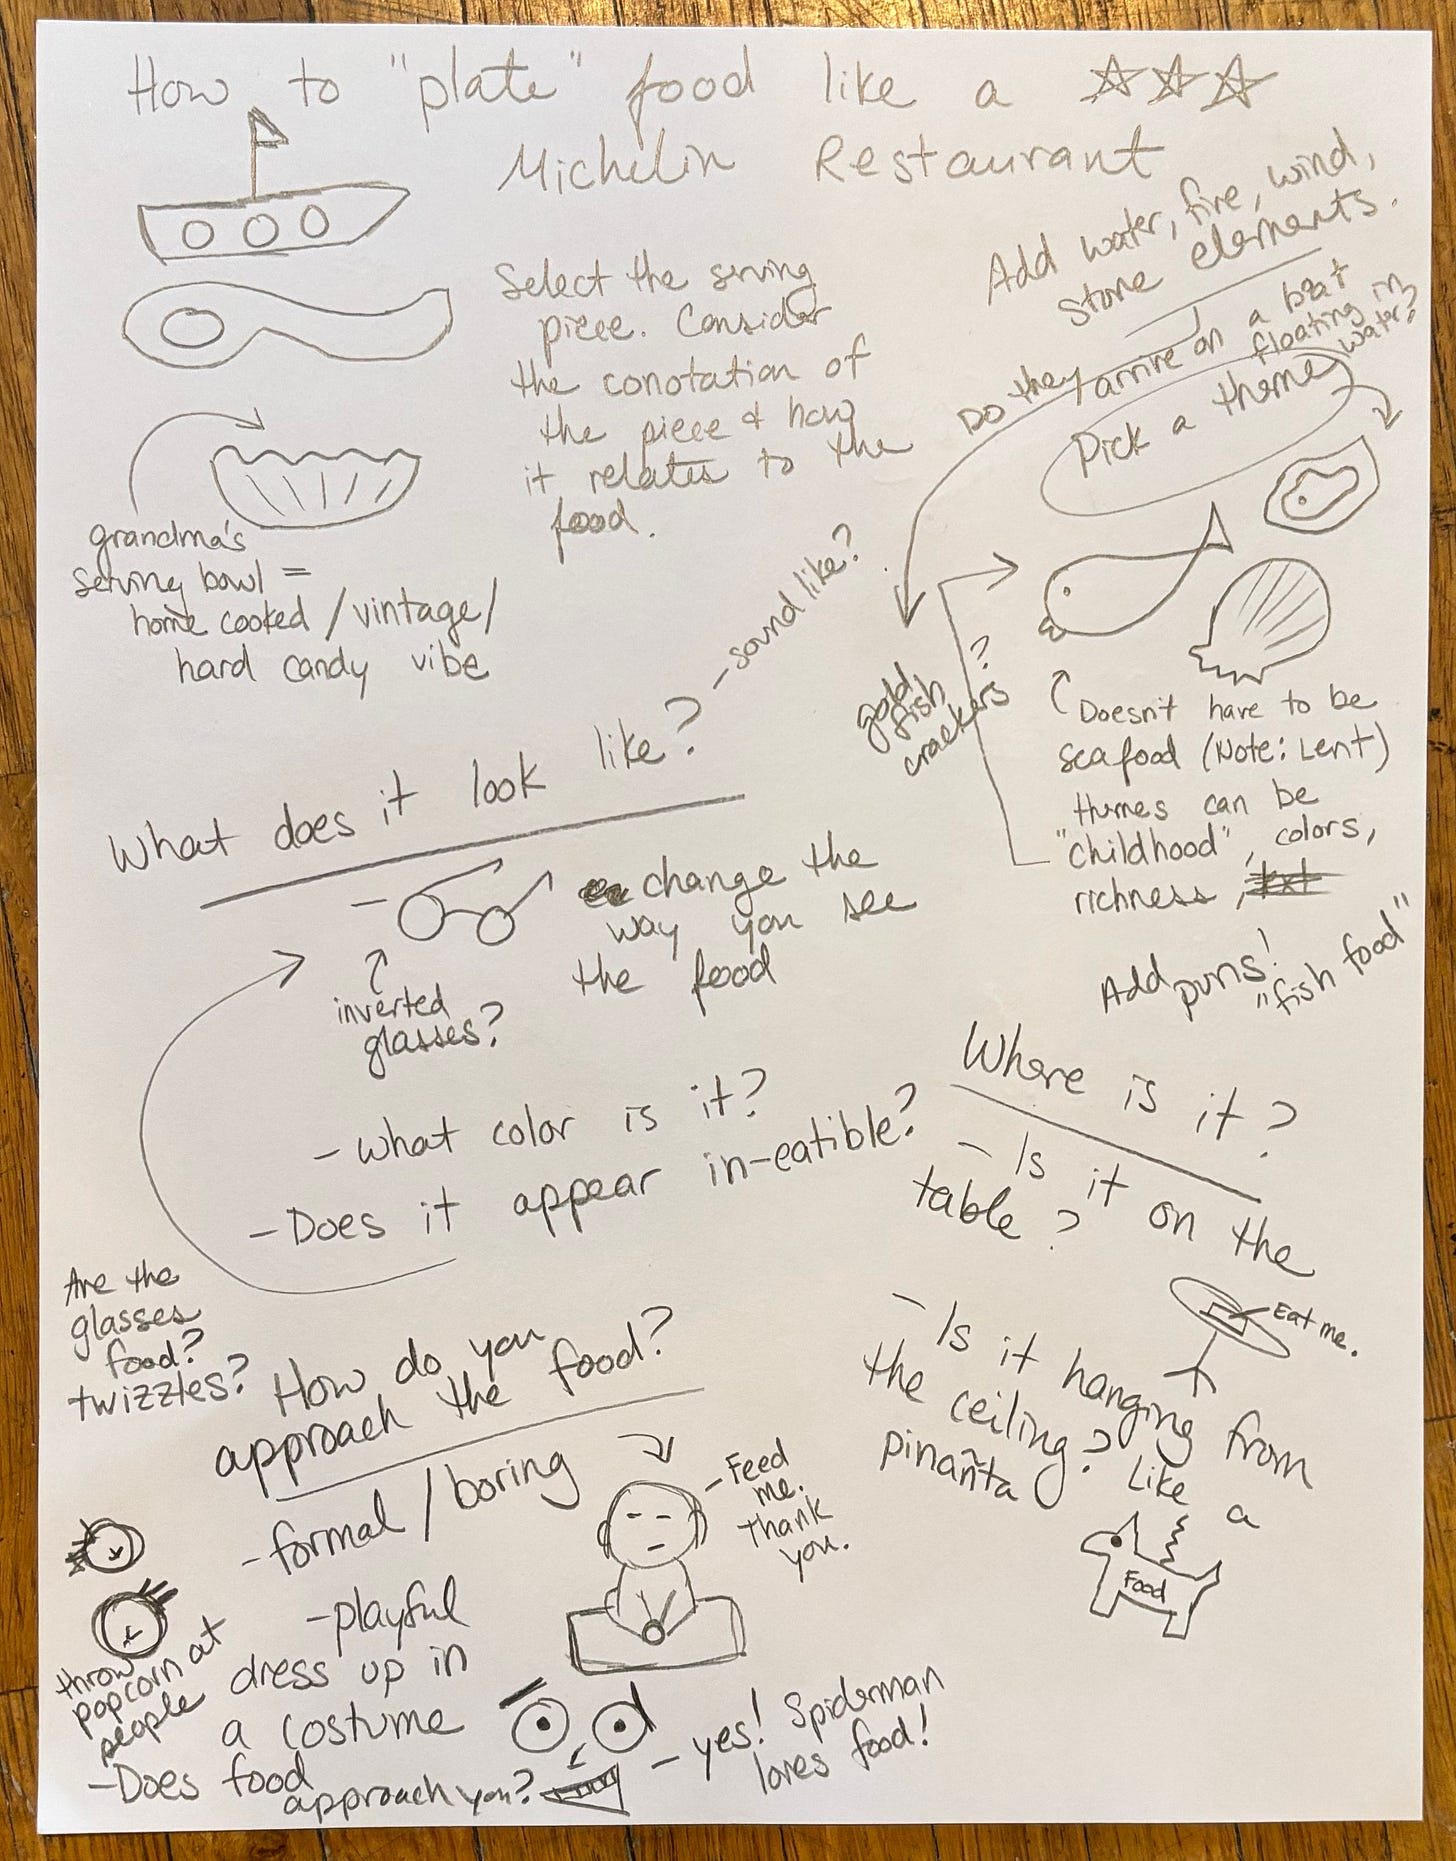 How to "plate" food like a
Michelin Restaurant
Add water, fire, wind,
stone elements.
Select the serving
piece. Consider
the conotation of
the piece & how
it relates to the
food.
Do they arrive on a boat
floating in
water?
Pick a theme
grandma's
serving bowl =
home cooked / vintage/
hard candy vibe
gold
fish
crackers?
Doesn't have to be
seafood (Note: Lent)
themes can be
"childhood", colors,
richness,
Add puns!
"fish food"
What does it look like?
- sound like?
change the
way you see
the food
inverted
glasses?
- What color is it?
- Does it appear in-eatible?
Are the
glasses
food?
twizzles?
Where is it?
- Is it on the
table?
Eat me.
- Is it hanging from
the ceiling? Like a
pinañta
Food
How do you
approach the food?
- formal / boring
- Feed
me.
Thank
you.
- playful
dress up in
a costume
throw
popcorn at
people
- Does food
approach you?
- yes! Spiderman
loves food!